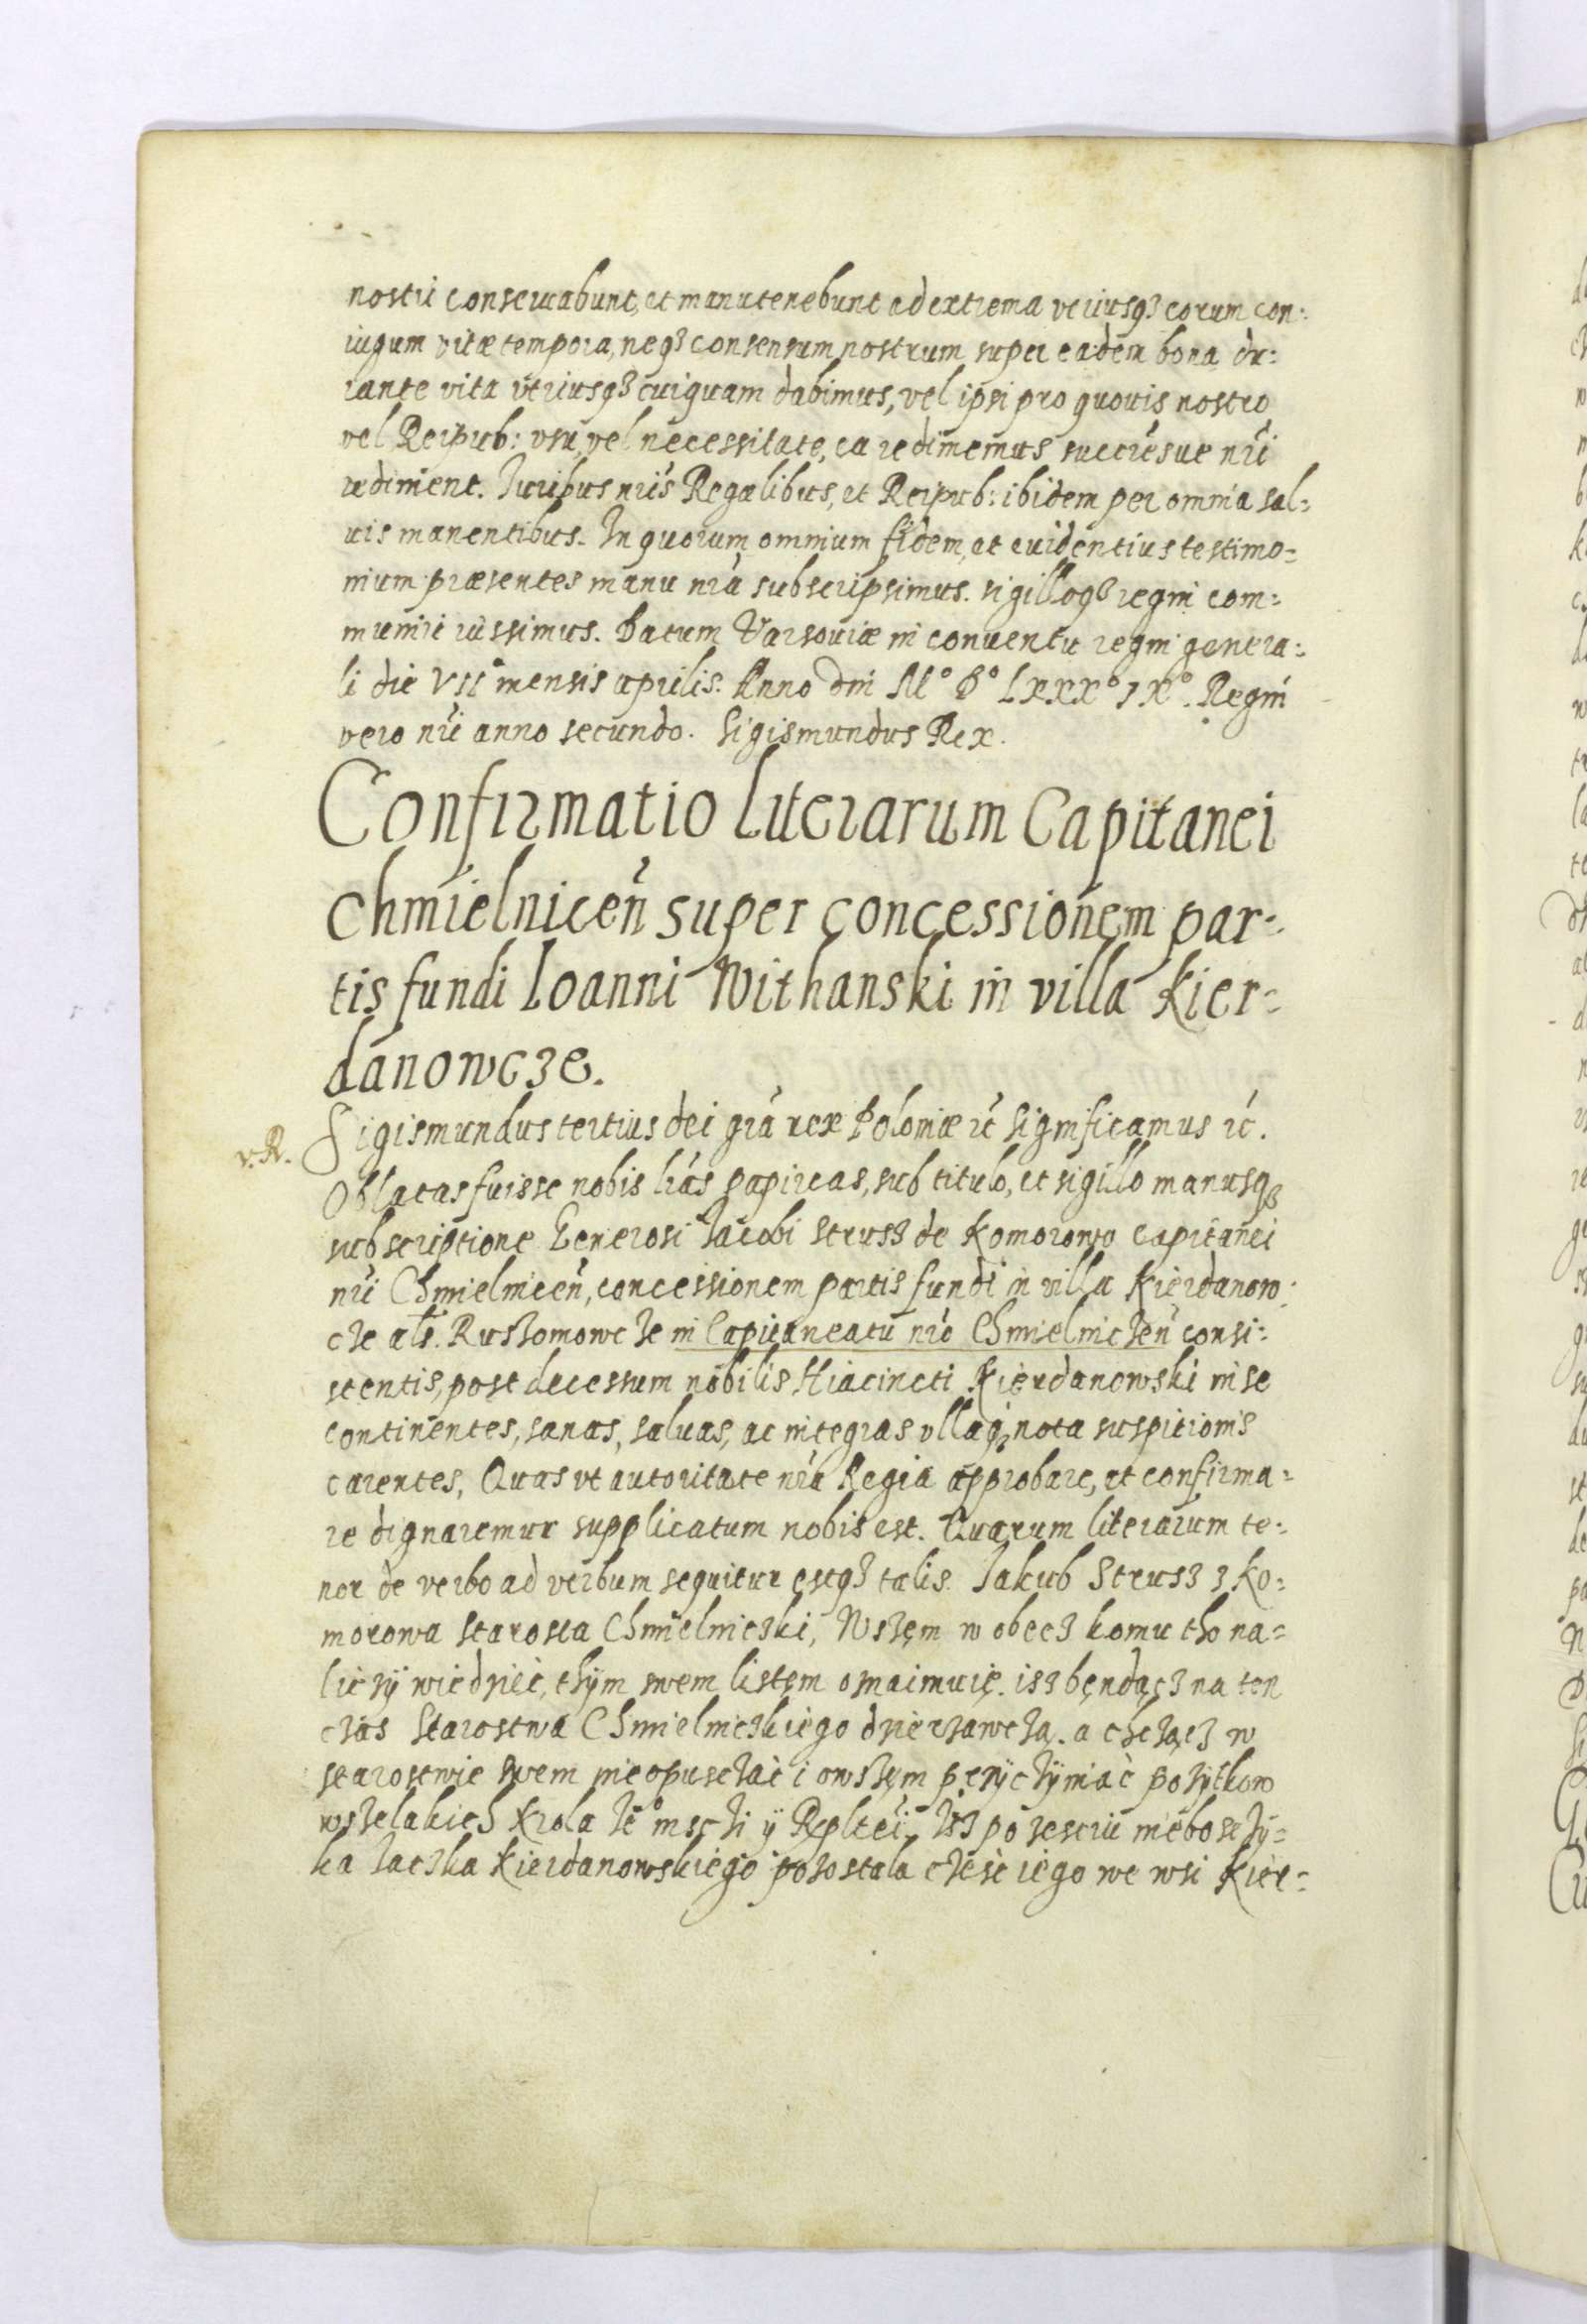 nostri conseruabunt, et manutenebunt ad extrema vtriusqȝ eorum con:
iugum vitæ tempora, neqȝ consensum nostrum super eadem bona du:
rante vita vtriusqȝ cuiquam dabimus, vel ipsi pro quouis nostro
vel Reipub: vsu, vel necessitate, ea redimemus succr̃esue nr̃i
rediment. Iuribus nr̃is Regalibus, et Reipub: ibidem per omnia sal:
uis manentibus. In quorum omnium fidem, et euidentius testimo=
nium præsentes manu nr̃a subscripsimus. sigilloqȝ regni com:
muniri iussimus. Datum Varsouiæ in conuentu regni genera:
li die VII mensis aprilis. Anno dni M° D° LXXX° IX°. Regni
vero nr̃i anno secundo. Sigismundus Rex.
Confirmatio literarum Capitanei
Chmielnicen̄ super concessionem par=
tis fundi Ioanni Withanski in villa Kier=
danowcze.
v. R. Sigismundus tertius dei gr̃a rex Poloniæ etc̃ Significamus etc̃.
Oblatas fuisse nobis lr̃as papireas, sub titulo, et sigillo manusqȝ
subscriptione Generosi Iacobi Strusz de Komorowo Capitanei
nr̃i Chmielnicen̄, concessionem partis fundi in villa Kierdanow:
cze als. Ruszomowcze in Capitaneatu nr̃o Chmielniczen̄ consi:
stentis, post decessum nobilis Hiacincti Kierdanowski in se
continentes, sanas, saluas, ac integras vllaqȝ nota suspitionis
carentes, Quas vt autoritate nr̃a Regia approbare, et confirma=
re dignaremur supplicatum nobis est. Quarum literarum te:
nor de verbo ad verbum sequitur estqȝ talis. Jakub Strusz z Ko:
morowa starosta Chmielniczki, Wszęm w obecz komu tho na=
lieżÿ wiedzieć, thÿm swem listęm oznaimuię. isz będącz na ten
czas Starostwa Chmielniczkiego dzierżawczą. a chczącz w
starostwie swem nie opusczać i owszęm pęrzÿcżÿniać pożÿtkow
wszelakich Krola Ie° msczi ÿ Replcei, Isz po zesciu niebosczÿ=
ka Iaczka Kierdanowskiego pozostała cżęsć iego we wsi Kier=